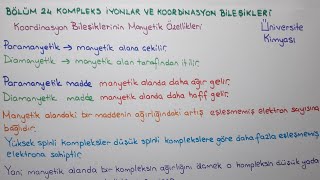 BÖLÜM 24 KOMPLEKS İYONLAR VE KOORDİNASYON BİLEŞİKLERİ
Koordinasyon Bileşiklerinin Manyetik Özellikleri
Üniversite
Kimyası
Paramanyetik → manyetik alana çekilir.
Diamanyetik → manyetik alan tarafından itilir.
Paramanyetik madde manyetik alanda daha ağır gelir.
Diamanyetik madde manyetik alanda daha hafif gelir.
Manyetik alandaki bir maddenin ağırlığındaki artış eşleşmemiş elektron sayısına
bağlıdır.
Yüksek spinli kompleksler düşük spinli komplekslere göre daha fazla eşleşmemiş
elektrona sahiptir.
Yani manyetik alanda bir kompleksin ağırlığını ölçmek o kompleksin düşük yada